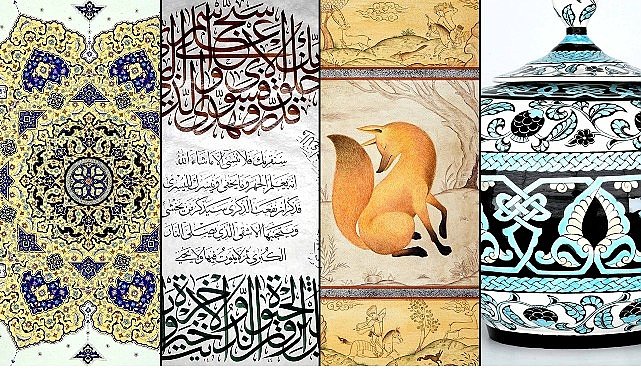 سبح اسم ربك الاعلى الذي
خلق فسوى والذي قدر فهدى والذي
سنقرئك فلا تنسى الا ما شاء الله
انه يعلم الجهر وما يخفى ونيسرك لليسرى
فذكر ان نفعت الذكرى سيذكر من يخشى
ويتجنبها الاشقى الذي يصلى النار
الكبرى ثم لا يموت فيها ولا يحيى
الحيوة والاخرة خير